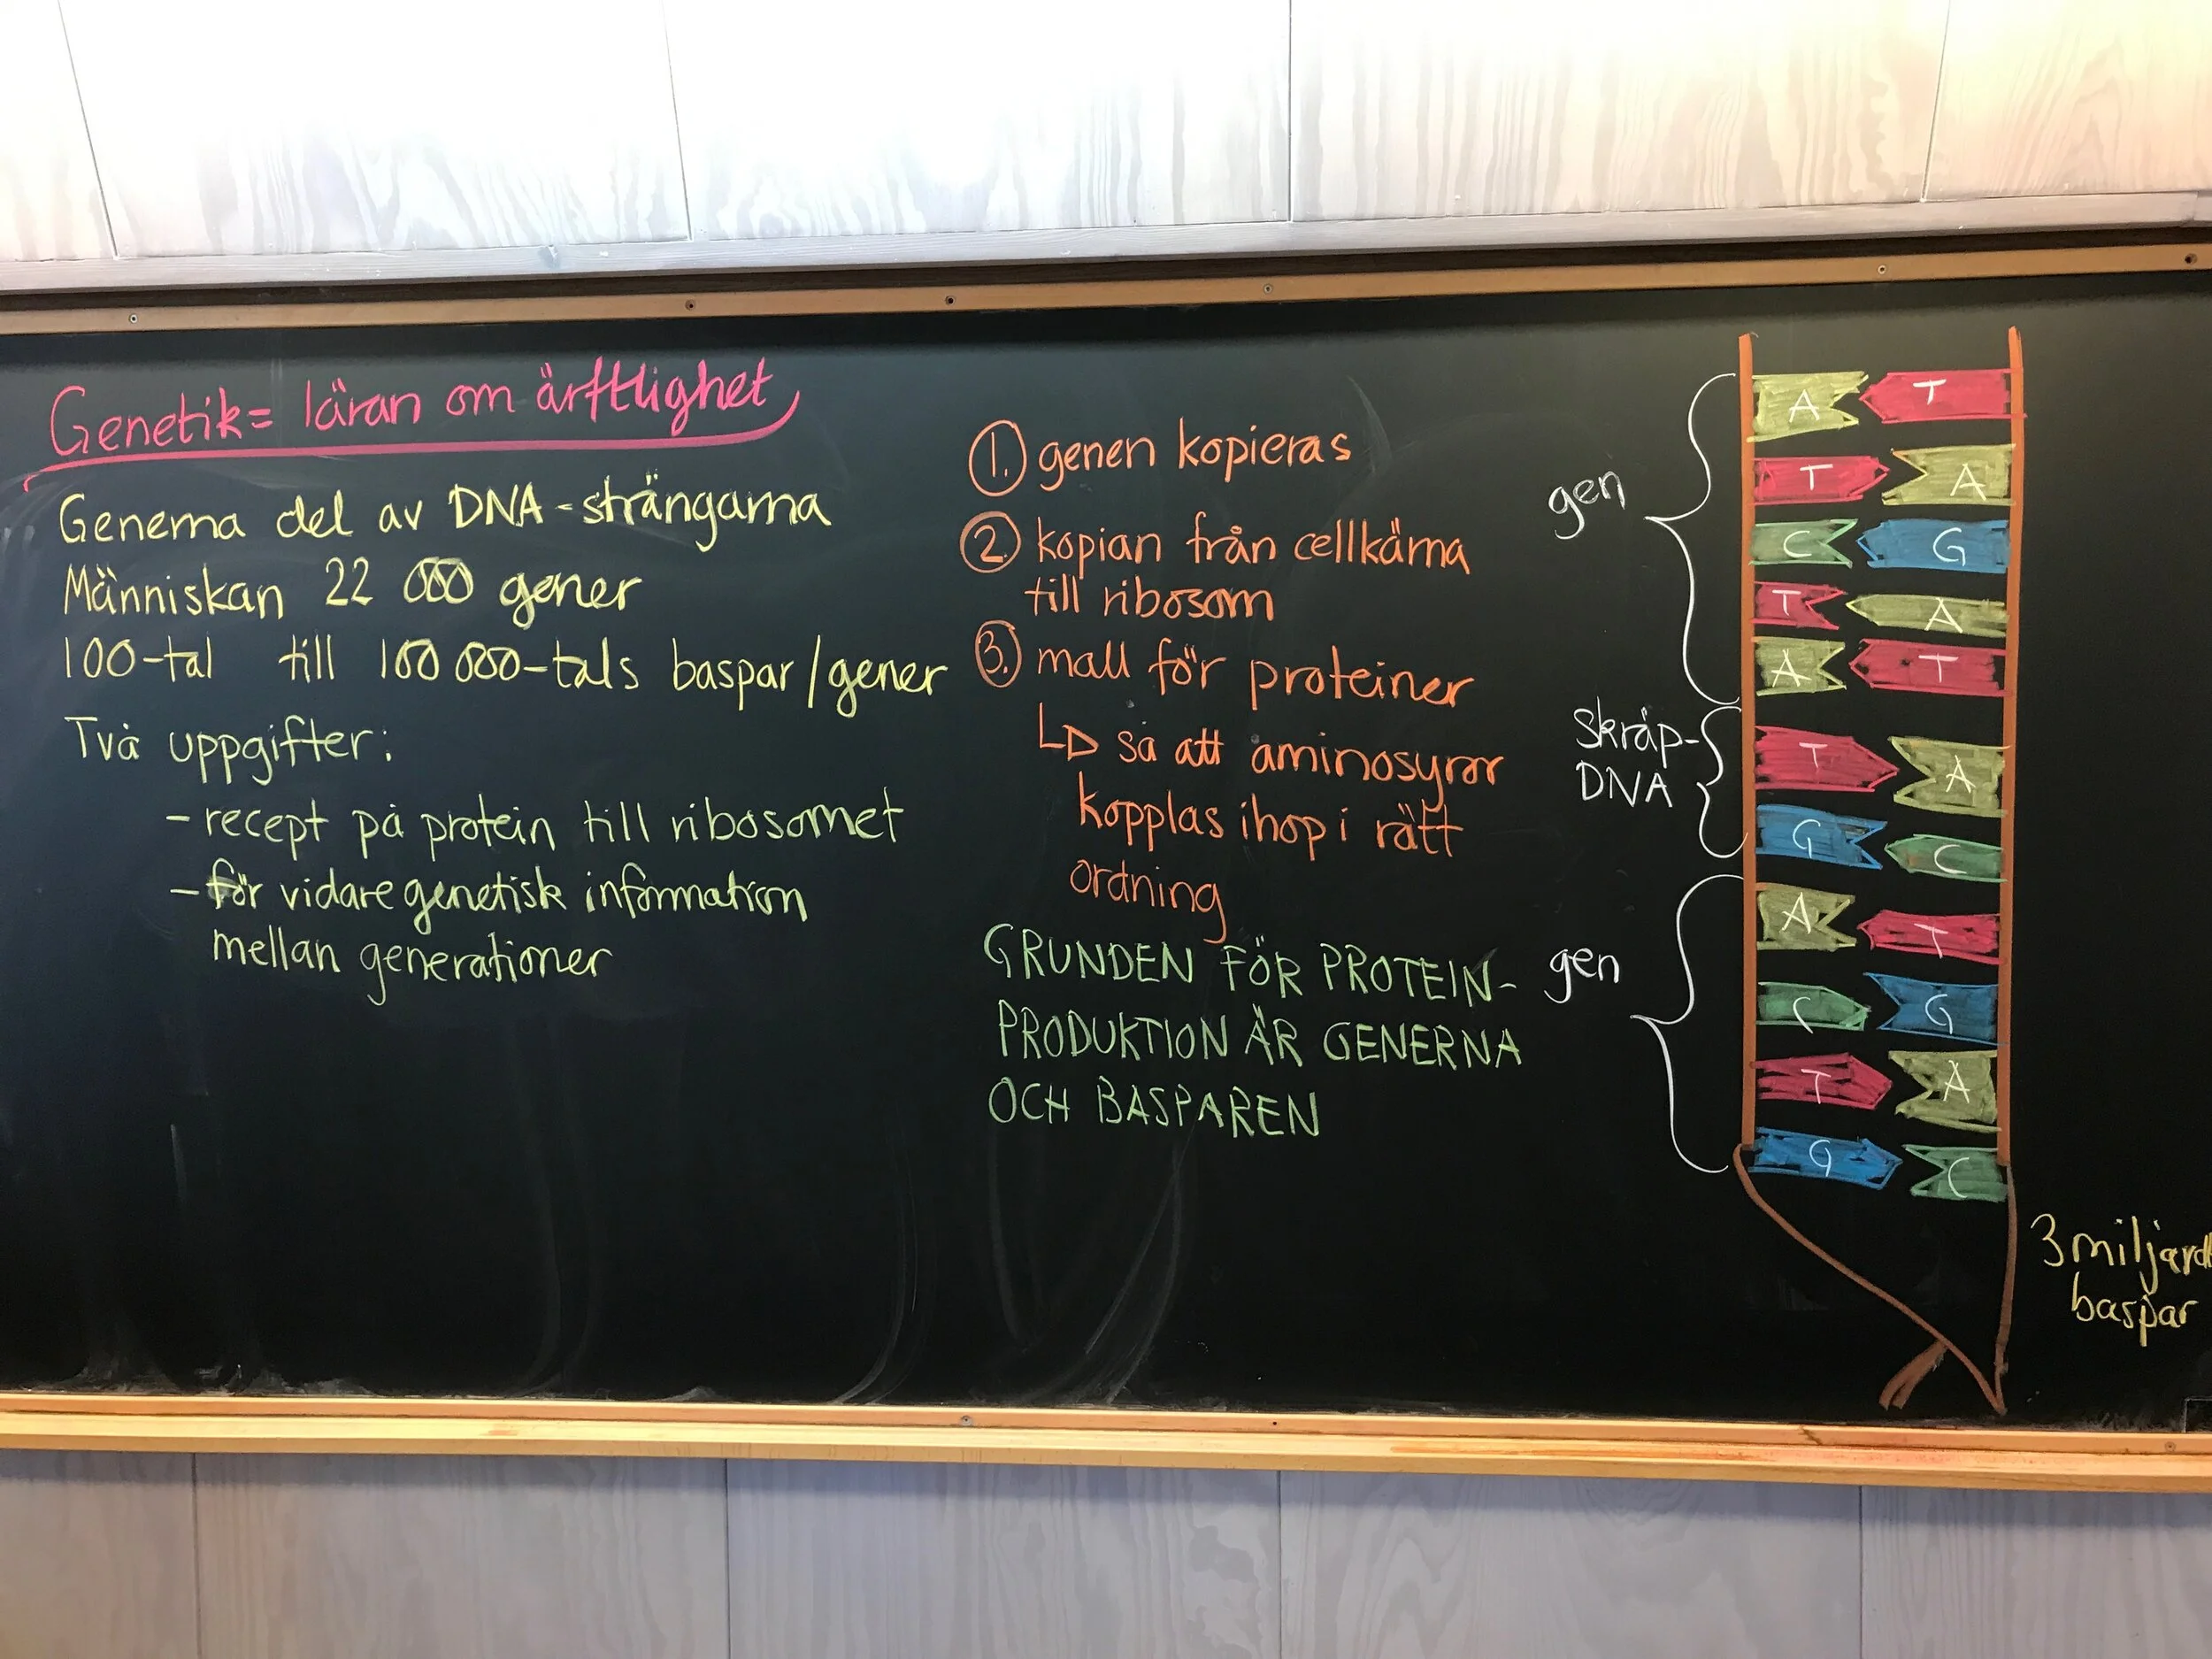 Genetik= läran om ärftlighet
Generna del av DNA-strängarna
Människan 22 000 gener
100-tal till 100 000-tals baspar/gener
Två uppgifter:
- recept på protein till ribosomet
- för vidare genetisk information
mellan generationer
1. genen kopieras
2. kopian från cellkärna
till ribosom
3. mall för proteiner
så att aminosyror
kopplas ihop i rätt
ordning
GRUNDEN FÖR PROTEIN-
PRODUKTION ÄR GENERNA
OCH BASPAREN
gen
skräp-
DNA
gen
A T
T A
C G
T A
A T
T A
G C
A T
C G
T A
G C
3 miljard
baspar